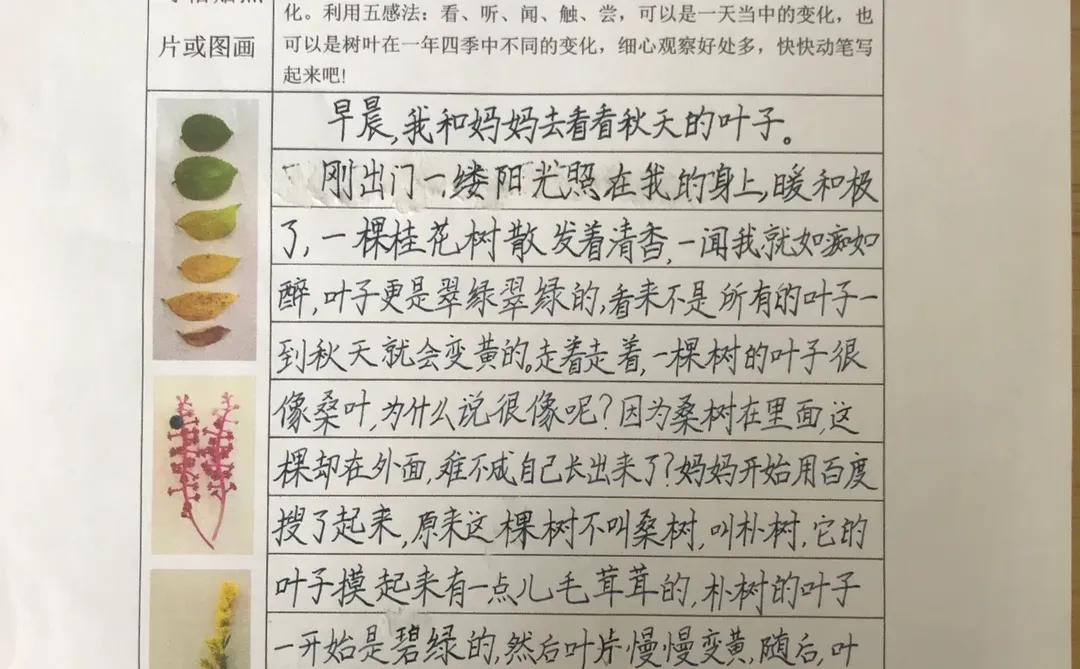 片或图画
化。利用五感法：看、听、闻、触、尝，可以是一天当中的变化，也
可以是树叶在一年四季中不同的变化，细心观察好处多，快快动笔写
起来吧！
早晨，我和妈妈去看看秋天的叶子。
刚出门一缕阳光照在我的身上，暖和极
了，一棵桂花树散发着清香，一闻我就如痴如
醉，叶子更是翠绿翠绿的，看来不是所有的叶子一
到秋天就会变黄的。走着走着，一棵树的叶子很
像桑叶，为什么说很像呢？因为桑树在里面，这
棵却在外面，难不成自己长出来了？妈妈开始用百度
搜了起来，原来这棵树不叫桑树，叫朴树，它的
叶子摸起来有一点儿毛茸茸的，朴树的叶子
一开始是碧绿的，然后叶片慢慢变黄，随后，叶